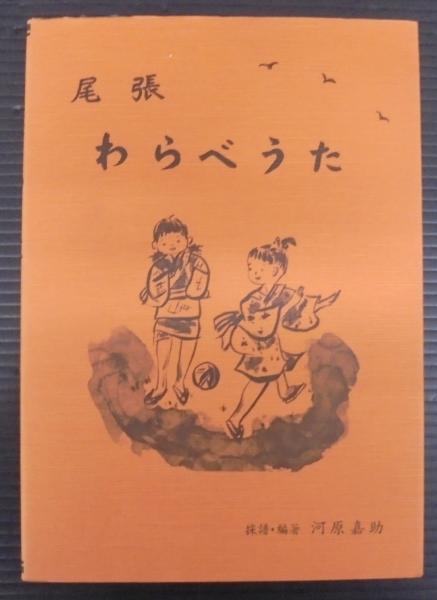 尾張
わらべうた
採譜・編著 河原嘉助